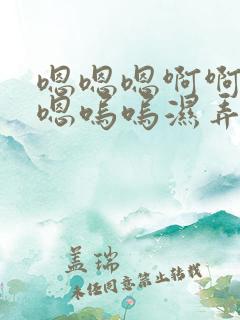 嗯嗯嗯啊啊
嗯呜呜湿弄
盖瑞
未经同意禁止转载